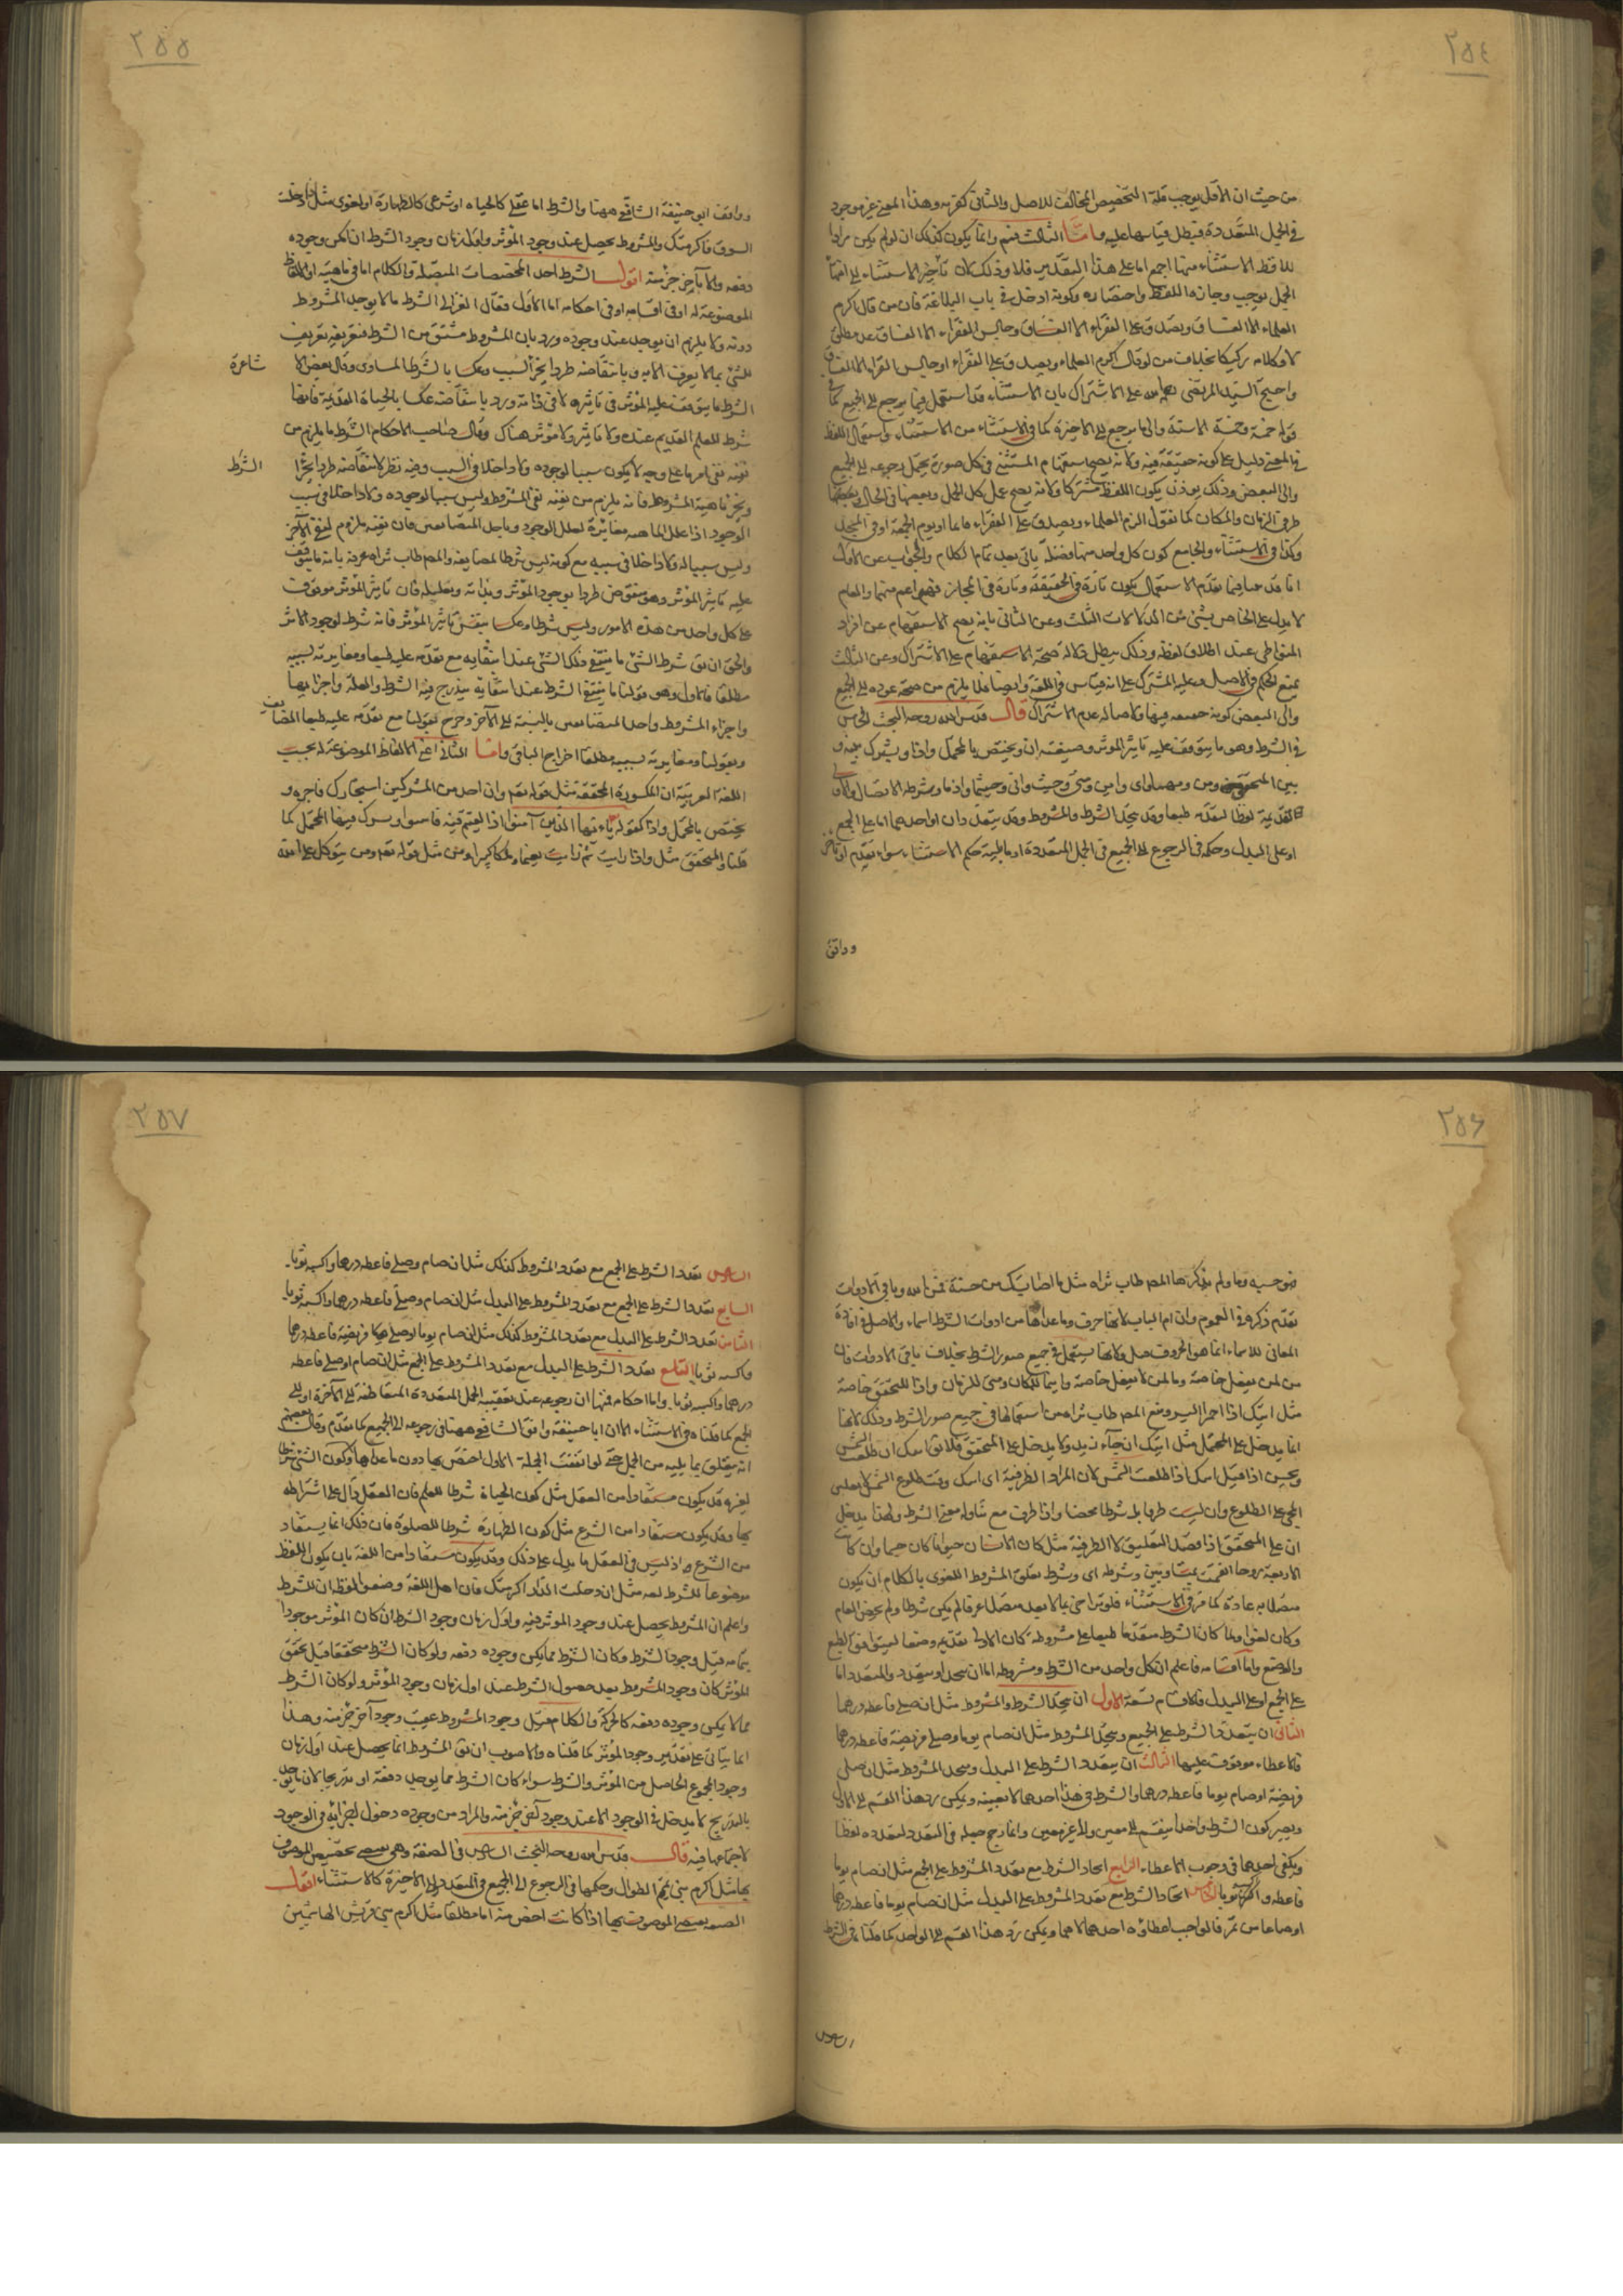 ٢٥٤
من حيث ان الاقل يوجب قلة التخصيص المخالف للاصل والثانى كقربه وهذا المعنى غير موجود
فى الجمل المتعددة فيبطل قياسها عليه واما الثالث فنم وانما يكون كذلك ان لو لم يكن مرادا
للافظ الاستثناء منها اجمع اما على هذا التقدير فلا وذلك لان تأخير الاستثناء الى
الجمل يوجب وجازة اللفظ واختصاره وكونه ادخل فى باب البلاغة فان من قال اكرم
العلماء الا الفساق وتصدق على الفقراء الا الفساق وجالس الفقراء الا الفساق عد مطلق
كلامه ركيكا بخلاف من لو قال اكرم العلماء وتصدق على الفقراء او جالس الفقراء الا الفساق
واحتج السيد المرتضى على الاشتراك بان الاستثناء قد استعمل فيما يرجع الى الجميع كما فى
قوله خمسة وخمسة الا ستة والى ما يرجع الى الاخيرة كما فى الاستثناء من الاستثناء واستعمال اللفظ
فى المعنى دليل على كونه حقيقة فيه ولانه يصح استفهام المستثنى فى كل صورة يحتمل رجوعه الى الجميع
والى البعض وذلك يوذن بكون اللفظ مشتركا ولانه يصح عمل كل الجمل وبعضها فى الحال وبعضها
ظرفى الزمان والمكان كما نقول اكرم العلماء وتصدق على الفقراء قائما او يوم الجمعة او فى المسجد
وكذا فى الاستثناء والجامع كون كل واحد منهما فضلة ياتى بعد تمام الكلام والجواب عن الاول
انا قد بينا فيما تقدم الاستعمال يكون تارة فى الحقيقة وتارة فى المجاز فهو اعم منهما والعام
لا يدل على الخاص بشىء من الدلالات الثلث وعن الثانى بانه يصح الاستفهام عن افراد
المتواطى عند اطلاق لفظه وذلك يبطل دلالة صحة الاستفهام على الاشتراك وعن الثالث
بمنع الحكم فى الاصل وعلية المشترك على انه قياس فى اللغة وايضا فلا يلزم من صحة عوده الى الجميع
والى البعض كونه حقيقة فيها ولاصالة عدم الاشتراك قال قدس الله روحه البحث الخامس
فى الشرط وهو ما يتوقف عليه تاثير الموثر وصيغته ان ويختص بالمحتمل واذا ويشترك بينه و
بين المتحقق ومن ومهما واى واين ومتى وحيث وانى وحيثما واذما وشرطه الاتصال والاولى
تقديمه لفظا لتقدمه طبعا وقد يتحد الشرط والمشروط وقد يتعددان او احدهما اما على الجمع
او على البدل وحكمه فى الرجوع الى الجميع فى الجمل المتعددة او ما يليه حكم الاستثناء سواء تقدم او تاخر
ووافق
٢٥٥
ووافق ابو حنيفة الشافعى ههنا والشرط اما عقلى كالحياه او شرعى كالطهارة او لغوى مثل ان دخلت
السوق فاكرمتك والمشروط يحصل عند وجود الموثر واول زمان وجود الشرط ان امكن وجوده
دفعة والا بآخر جزء منه اقول الشرط احد المخصصات المتصلة والكلام اما فى ماهيته او الالفاظ
الموضوعة له او فى اقسامه او فى احكامه اما الاول فقال الغزالى الشرط ما لا يوجد المشروط
دونه ولا يلزم ان يوجد عند وجوده ورد بان المشروط مشتق من الشرط فتعريفه تعريف
للشئ بما لا يعرف الا به وبانتقاضه طردا بجزء السبب وعكسا بالشرط المساوى وقال بعض الا
شاعرة
الشرط ما يتوقف عليه الموثر فى تاثيره لا فى ذاته ورد بانتقاضه عكسا بالحياة القديمة فانها
شرط للعلم القديم عنده ولا تاثير ولا موثر هناك وقال صاحب الاحكام الشرط ما يلزم من
نفيه نفى امر ما على وجه لا يكون سببا لوجوده ولا داخلا فى السبب وفيه نظر لانتقاضه طردا بجزء
الشرط
وبجزء ماهية المشروط فانه يلزم من نفيه نفى المشروط وليس سببا لوجوده ولا داخلا فى سبب
الوجود اذا علل الماهية مغايرة لعلل الوجود وباحد المتضايفين فان نفيه ملزوم لنفى الآخر
وليس سببا له ولا داخلا فى سببه مع كونه ليس شرطا لمضايفه والمص طاب ثراه عرفه بانه ما يتوقف
عليه تاثير الموثر وهو منقوض طردا بوجود الموثر وبذاته وبعلته فان تاثير الموثر موقوف
على كل واحد من هذه الامور وليس شرطا وعكسا بنفس تاثير الموثر فانه شرط لوجود الاثر
والحق ان يق شرط الشئ ما ينتفى ذلك الشئ عند انتفائه مع تقدمه عليه طبعا ومغايرته لسببه
مطلقا فالاول وهو قولنا ما ينتفى الشرط عند انتفائه يندرج فيه الشرط والعلة واجزائها
واجزاء المشروط واحد المتضايفين بالنسبة الى الآخر وخرج بقولنا مع تقدمه عليه طبعا المضايف
وبقولنا ومغايرته لسببه مطلقا اخراج الباقى واما الثانى اعنى الالفاظ الموضوعة له بحسب
اللغة العربية ان المكسورة المخففة مثل قوله تعم وان احد من المشركين استجارك فاجره و
يختص بالمحتمل واذا كقوله يا ايها الذين آمنوا اذا لقيتم فيه فاسوا ويشترك فيها المحتمل كما
قلنا والمتحقق مثل واذا رايت ثم رايت نعيما وملكا كبيرا ومن مثل قوله تعم ومن يتوكل على الله
٢٥٦
فهو حسبه وما ولم يذكرها المص طاب ثراه مثل ما اصابك من حسنة فمن الله وباقى الادوات
تقدم ذكره فى العموم وان ام الباب لانها حرف وما عداها من ادوات الشرط اسماء والاصل فى افادة
المعانى للاسماء انما هو الحروف ولانها تستعمل فى جميع صور الشرط بخلاف باقى الادوات فان
من لمن يعقل خاصة وما لمن لا يعقل خاصة واينما للمكان ومتى للزمان واذا للمتحقق خاصة
مثل اتيك اذا احمر البسر ومنع المص طاب ثراه من استعمالها فى جميع صور الشرط وذلك لانها
انما يدخل على المحتمل مثل اتيك ان جاء زيد ولا يدخل على المتحقق فلا يق اتيك ان طلعت الشمس
ويحسن اذا قيل اتيك اذا طلعت الشمس لان المراد الظرفية اى اتيك وقت طلوع الشمس
المجئ على الطلوع وان ليست ظرفا بل شرطا محضا واذا ظرف مع تناوله معنى الشرط ولهذا يدخل
ان على المتحقق اذا قصد التعليق لا الظرفية مثل كان الانسان حيوانا كان جسما وان كانت
الاربعة زوجا انقسمت بمتساويين وشرطه اى وشرط تعلق المشروط اللغوى بالكلام ان يكون
متصلا به عادة كما مر فى الاستثناء فلو تراخى بما لا يعد متصلا عرفا لم يكن شرطا ولم يخص العام
وكان لغوا ولما كان الشرط متقدما طبعا على مشروطه كان الاولى تقديمه وضعا ليتوافق الطبع
والوضع واما اقسامه فاعلم ان كل واحد من الشرط ومشروطه اما ان يتحد او يتعدد والمتعدد اما
على الجمع او على البدل فالاقسام تسعة الاول ان يتحد الشرط والمشروط مثل ان صلى فاعطه درهما
الثانى ان يتعدد الشرط على الجمع ويتحد المشروط مثل ان صام يوما وصلى فريضة فاعطه درهما
فالاعطاء موقوف عليهما الثالث ان يتعدد الشرط على البدل ويتحد المشروط مثل ان صلى
فريضة او صام يوما فاعطه درهما والشرط فى هذا احدهما لا بعينه ويمكن رد هذا القسم الى الاول
ويصير كون الشرط واحدا ينقسم الى معين والى غير معين وانما رجح جعله فى المتعدد لتعدده لفظا
ويكفى احدهما فى وجوب الاعطاء الرابع اتحاد الشرط مع تعدد المشروط على الجمع مثل ان صام يوما
فاعطه واكسه ثوبا الخامس اتحاد الشرط مع تعدد المشروط على البدل مثل ان صام يوما فاعطه درهما
او صاعا من تمر فالواجب اعطاؤه احدهما لا هما ويمكن رد هذا القسم الى الواحد كما قلنا فى الشرط
السادس
٢٥٧
السادس تعدد الشرط على الجمع مع تعدد المشروط كذلك مثل ان صام وصلى فاعطه درهما واكسه ثوبا
السابع تعدد الشرط على الجمع مع تعدد المشروط على البدل مثل ان صام وصلى فاعطه درهما واكسه ثوبا
الثامن تعدد الشرط على البدل مع تعدد المشروط كذلك مثل ان صام يوما او صلى فريضة فاعطه درهما
واكسه ثوبا التاسع تعدد الشرط على البدل مع تعدد المشروط على الجمع مثل ان صام او صلى فاعطه
درهما واكسه ثوبا واما احكامه فمنها ان رجوعه عند تعقيبه الجمل المتعددة المتعاطفة الى الآخرة او الى
الجمع كما قلناه فى الاستثناء الا ان ابا حنيفة وافق الشافعى ههنا فى رجوعه الى الجميع كما تقدم وقال بعضهم
انه يتعلق بما يليه من الجمل حتى لو اتفقت الجملة الاولى اختص بها دون ما عداها وكون الشئ شرطا
لغيره قد يكون مستفادا من العقل مثل كون الحياة شرطا للعلم فان العقل دال على اشتراطه
بها وقد يكون مستفادا من الشرع مثل كون الطهارة شرطا للصلوة فان ذلك انما يستفاد
من الشرع اذ ليس فى العقل ما يدل على ذلك وقد يكون مستفادا من اللغة بان يكون اللفظ
موضوعا للشرط لغة مثل ان دخلت الدار اكرمتك فان اهل اللغة وضعوا لفظة ان للشرط
واعلم ان المشروط يحصل عند وجود الموثر فيه واول زمان وجود الشرط ان كان الموثر موجودا
بتمامه قبل وجود الشرط وكان الشرط مما يمكن وجوده دفعة ولو كان الشرط متحققا قبل تحقق
الموثر كان وجود المشروط بعد حصول الشرط عند اول زمان وجود الموثر ولو كان الشرط
مما لا يمكن وجوده دفعة كالحركة والكلام فقيل وجود المشروط عقيب وجود آخر جزء منه وهذا
انما يتاتى على تقدير وجود الموثر كما قلناه والاصوب ان يق المشروط انما يحصل عند اول زمان
وجود المجموع الحاصل من الموثر والشرط سواء كان الشرط مما يوجد دفعة او تدريجا لان ما يوجد
بالتدريج لا يدخل فى الوجود الا عند وجود آخر جزء منه والمراد من وجوده دخول اجزائه فى الوجود
لا اجتماعها فيه قال قدس الله روحه البحث السادس فى الصفة وهى تخصيص الموصوف
بها مثل اكرم بنى تميم الطوال وحكمها فى الرجوع الى الجميع فى المتعدد او الى الاخيرة كالاستثناء اقول
الصفة الموصوف بها اذا كانت اخص منه اما مطلقا مثل اكرم بنى قريش الهاشميين